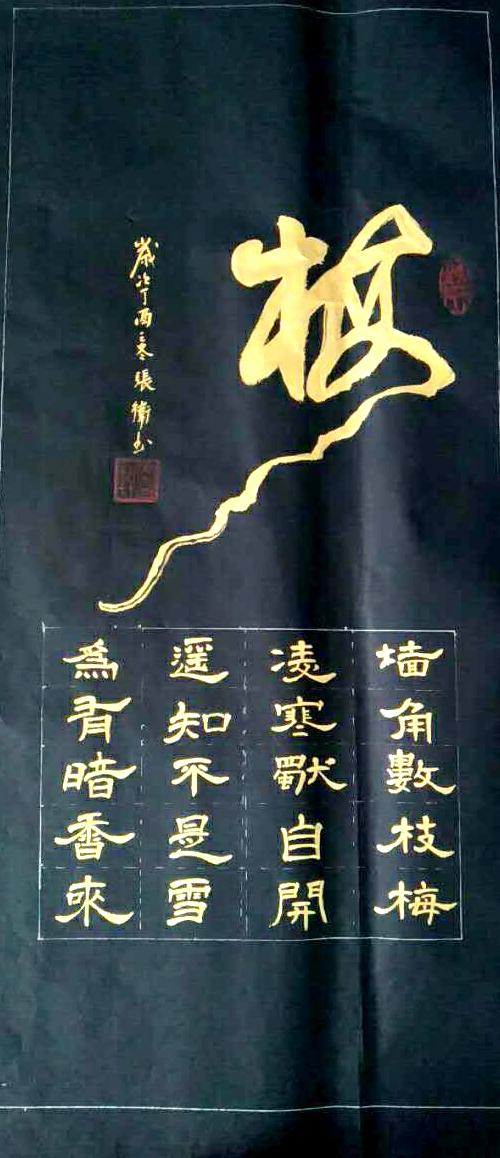 梅
歲次丁酉之冬張衛书
墙角數枝梅
凌寒獨自開
遥知不是雪
爲有暗香來